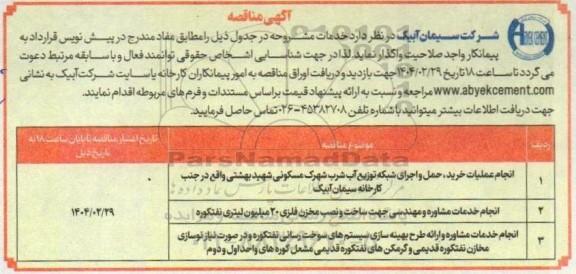 آگهی مناقصه
شرکت سیمان آبیک در نظر دارد خدمات مشروحه در جدول ذیل را مطابق مفاد مندرج در پیش نویس قرارداد به
پیمانکار واجد صلاحیت واگذار نماید. لذا در جهت شناسایی اشخاص حقوقی توانمند فعال و با سابقه مرتبط دعوت
می گردد تا ساعت ۱۸ تاریخ ۱۴۰۴/۰۲/۲۹ جهت بازدید و دریافت اوراق مناقصه به امور پیمانکاران کارخانه یا سایت شرکت آبیک به نشانی
www.abyekcement.com مراجعه و نسبت به ارائه پیشنهاد قیمت بر اساس مستندات و فرم های مربوطه اقدام نمایند.
جهت دریافت اطلاعات بیشتر میتوانید با شماره تلفن ۴۵۳۸۲۷۰۸-۰۲۶ تماس حاصل فرمایید.
ردیف
موضوع مناقصه
تاریخ اعتبار مناقصه تا پایان ساعت ۱۸ به تاریخ ذیل
۱
انجام عملیات خرید، حمل و اجرای شبکه توزیع آب شرب شهرک مسکونی شهید بهشتی واقع در جنب
کارخانه سیمان آبیک
۲
انجام خدمات مشاوره و مهندسی جهت ساخت و نصب مخزن فلزی ۲۰ میلیون لیتری نفتکوره
۱۴۰۴/۰۲/۲۹
۳
انجام خدمات مشاوره و ارائه طرح بهینه سازی سیستم های سوخت رسانی نفتکوره و در صورت نیاز نوسازی
مخازن نفتکوره قدیمی و گرمکن های نفتکوره قدیمی مشعل کوره های واحد اول و دوم
ParsNamadData